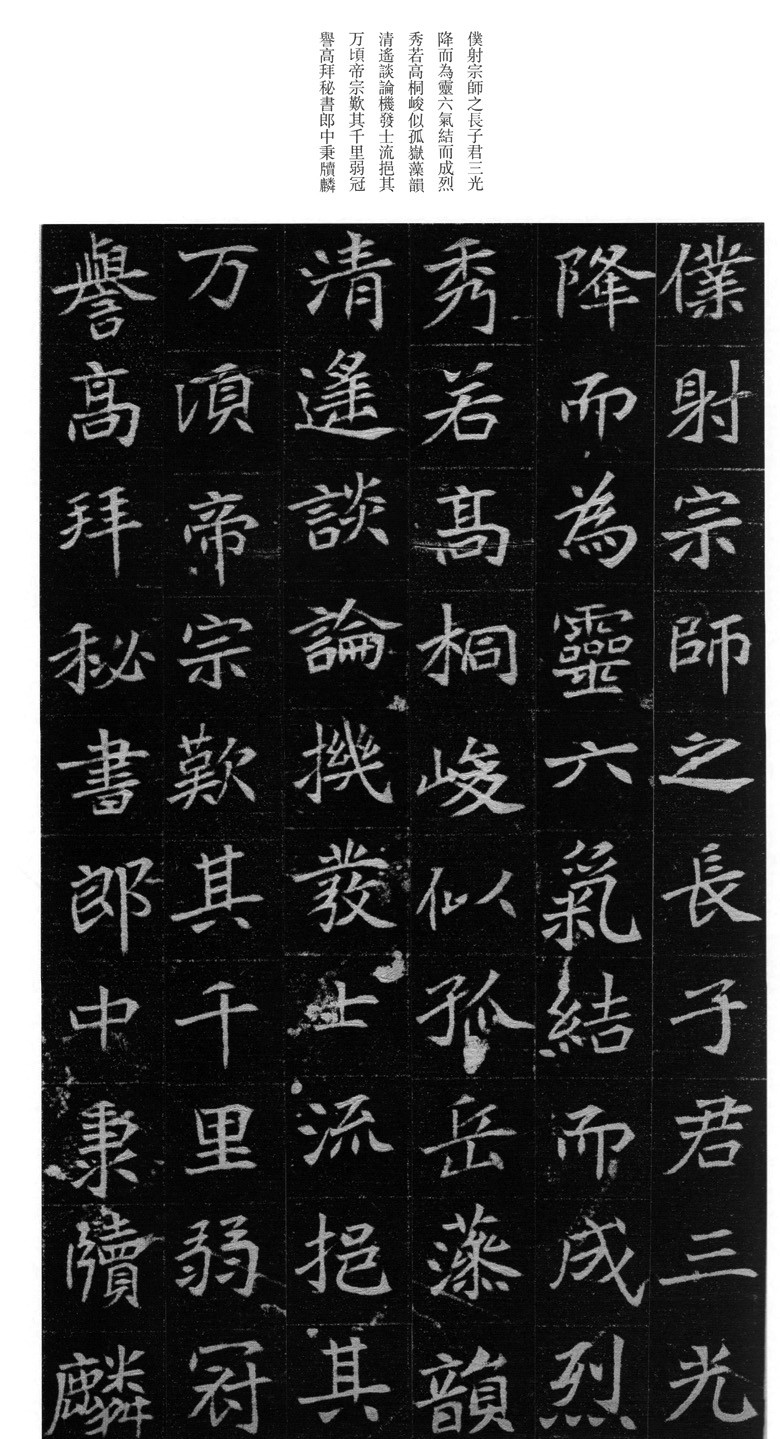 僕射宗師之長子君三光
降而為靈六氣結而成烈
秀若高桐峻似孤嶽藻韻
清遙談論機發士流挹其
万頃帝宗歎其千里弱冠
譽高拜秘書郎中秉牘麟
僕射宗師之長子君三光
降而為靈六氣結而成烈
秀若髙桐峻似孤岳藻韻
清遙談論機發士流挹其
万頃帝宗歎其千里弱冠
譽髙拜秘書郎中秉牘麟